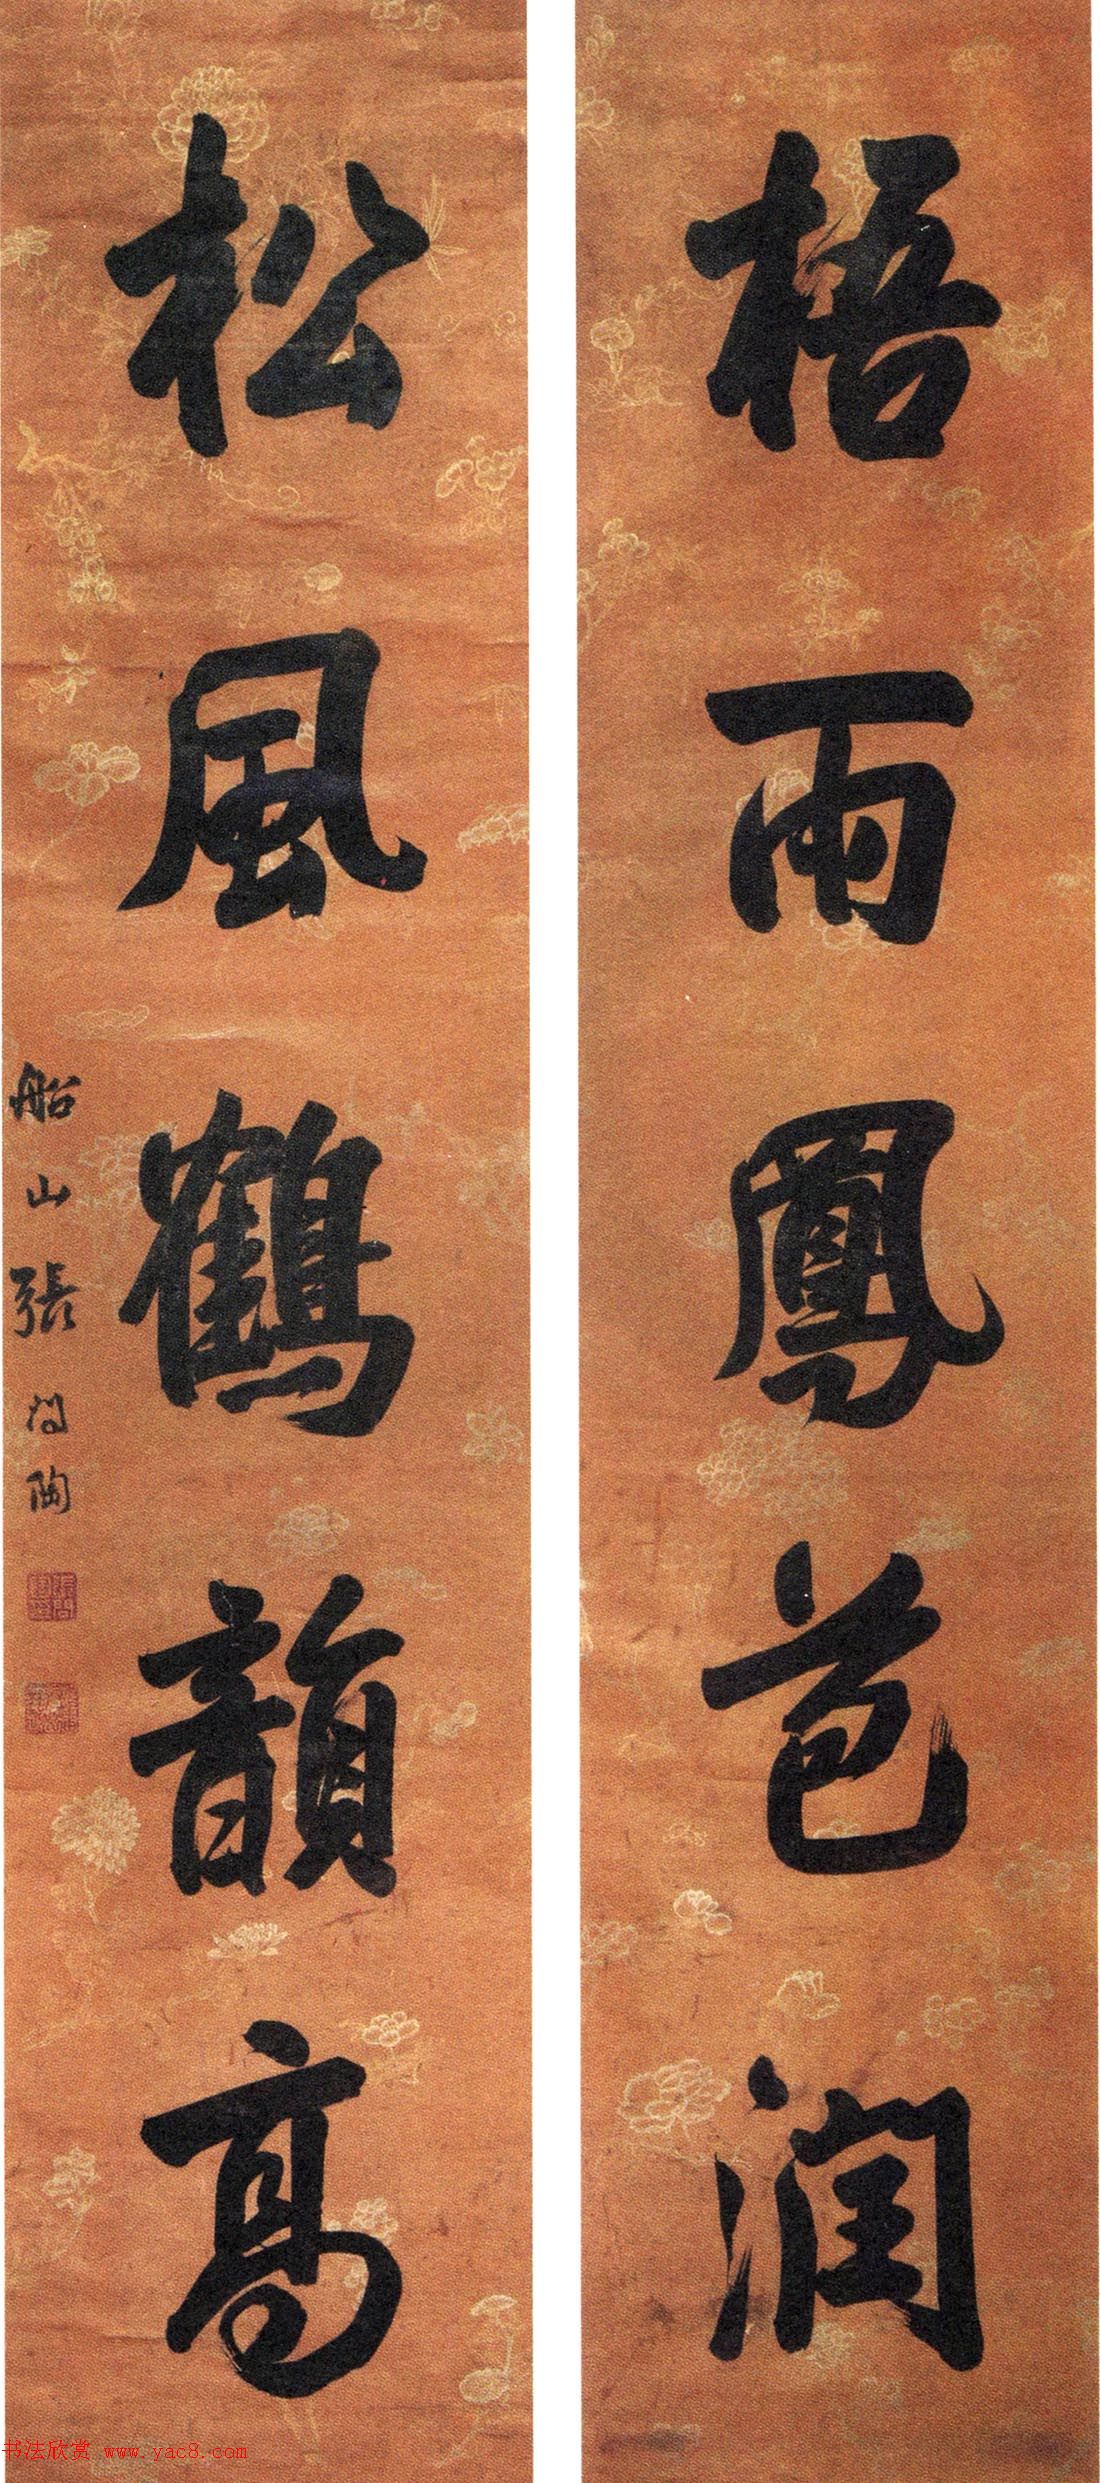 梧雨鳳苞潤
松風鶴韻高
船山張問陶
书法欣赏 www.yac8.com